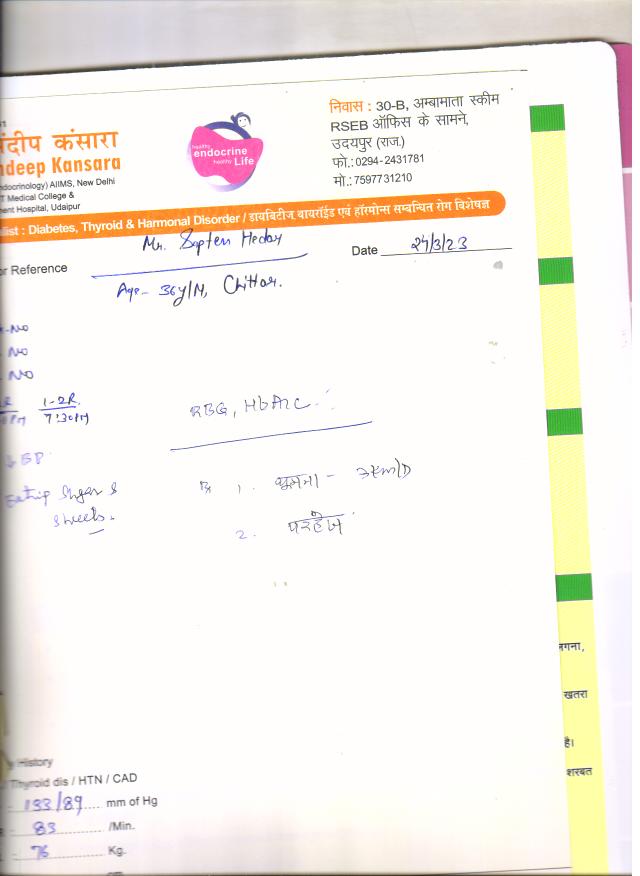 संदीप कंसारा
ndeep Kansara
ndocrinology) AIIMS, New Delhi
T Medical College &
ent Hospital, Udaipur
healthy
endocrine
healthy Life
निवास : 30-B, अम्बामाता स्कीम
RSEB ऑफिस के सामने,
उदयपुर (राज.)
फो.:0294-2431781
मो.: 7597731210
list : Diabetes, Thyroid & Harmonal Disorder / डायबिटीज थायरॉईड एवं हॉरमोन्स सम्बन्धित रोग विशेषज्ञ
Mr.
or Reference
Date 24/3/23
Age - 36y/M, Chittor.
- NO
- NO
- NO
1-2R
7:30PM
RBG, HbA1c
Eating Sugar &
Sweets.
Rx 1. घूमना - 3km/D
2. परहेज
लगना,
खतरा
है।
शरबत
History
Thyroid dis / HTN / CAD
133/89 mm of Hg
83 /Min.
76 Kg.